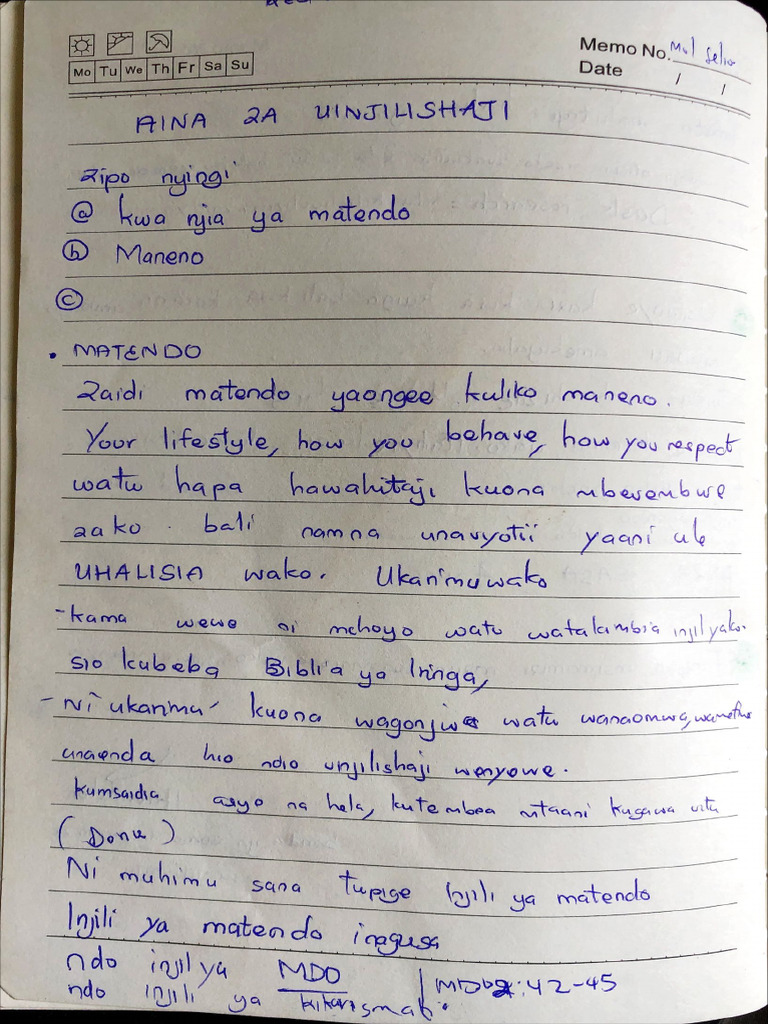 Memo No.
Mo Tu We Th Fr Sa Su
Date / /
AINA ZA UINJILISHAJI
Zipo nyingi
a kwa njia ya matendo
b Maneno
c
• MATENDO
Zaidi matendo yaongee kuliko maneno.
Your lifestyle, how you behave, how you respect
watu hapa hawahitaji kuona mbwembwe
zako. bali namna unavyotii yaani ule
UHALISIA wako. Ukarimu wako
- kama wewe ni mchoyo watu injil yako.
sio kubeba Biblia ya Iringa,
- Ni ukarimu kuona wagonjwa watu
unaenda hio ndio unjilishaji wenyewe.
kumsaidia asiyo na hela, kutembea mtaani kugawa vitu
Ni muhimu sana tupige Injili ya matendo
Injili ya matendo inagusa
ndo injil ya MDO | MDO 2:42-45
ndo injili ya